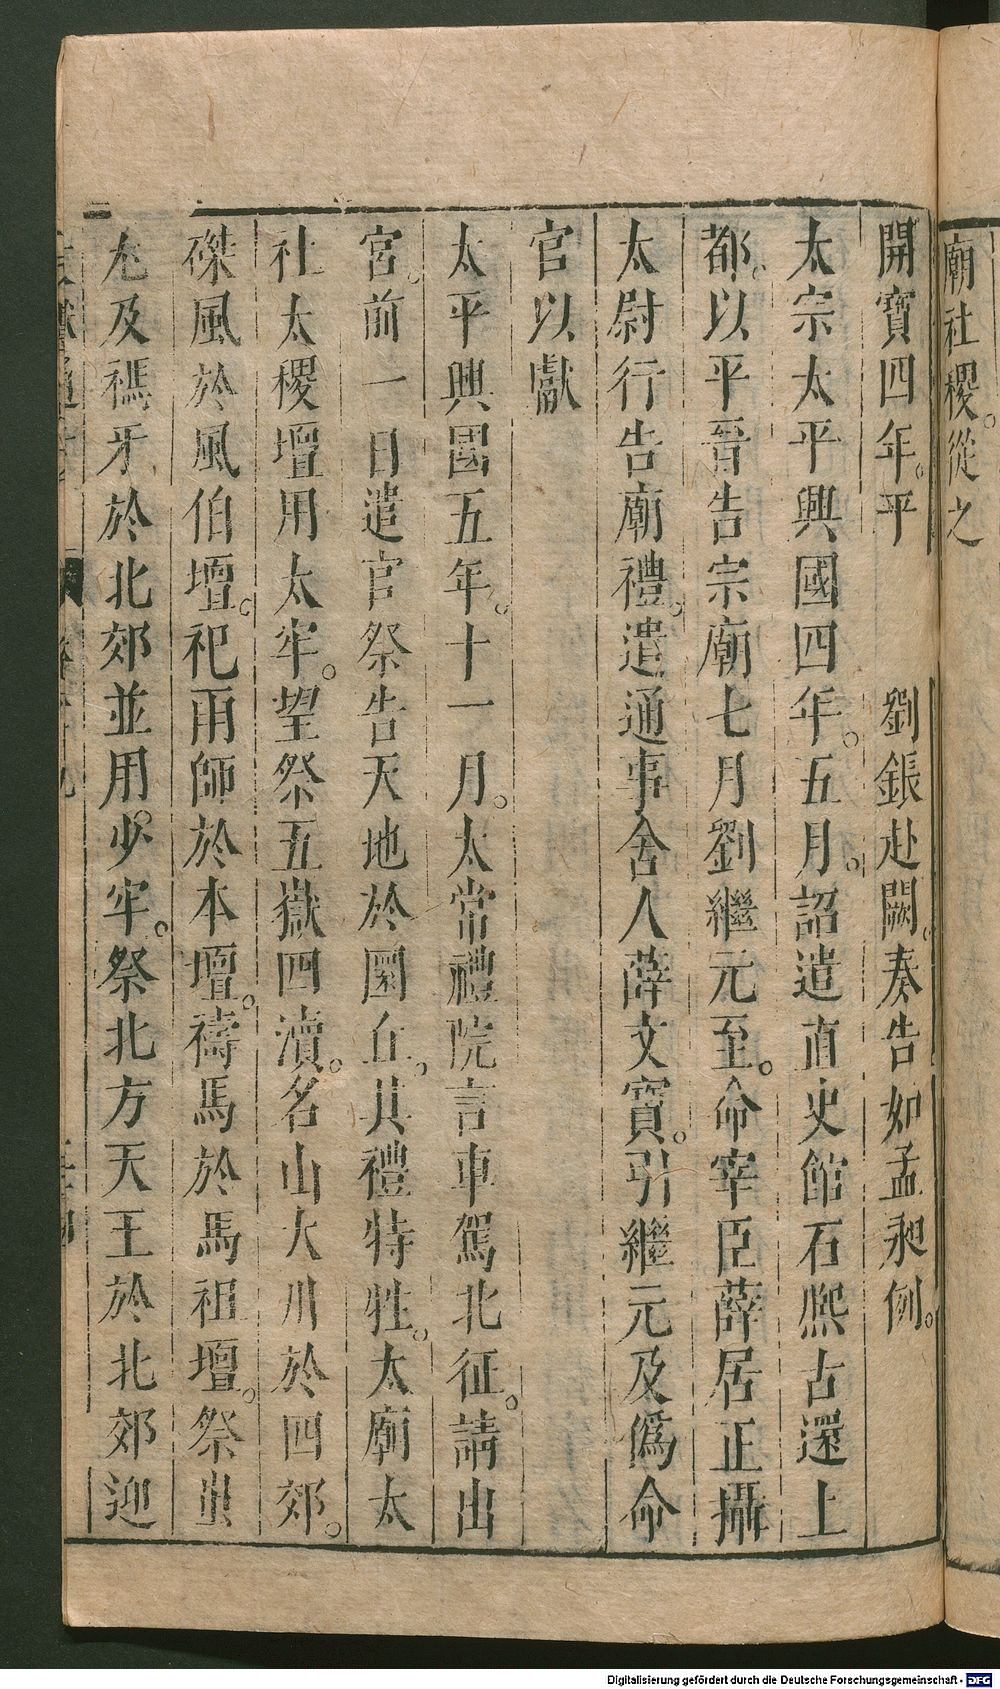 廟社稷。從之
開寶四年。平　　劉鋹赴闕。奏告如孟昶例。
太宗太平興國四年。五月。詔遣直史館石熙古還上
都。以平晉告宗廟七月劉繼元至。命宰臣薛居正攝
太尉行告廟禮。遣通事舍人薛文寶。引繼元及僞命
官以獻
太平興國五年。十一月。太常禮院言車駕北征。請出
宮。前一日遣官祭告天地於圜丘。其禮特牲。太廟太
社太稷壇用太牢。望祭五嶽四瀆。名山大川於四郊。
磔風於風伯壇。祀雨師於本壇。禱馬於馬祖壇。祭蚩
尤及禡牙於北郊並用。少牢。祭北方天王於北郊迎
Digitalisierung gefördert durch die Deutsche Forschungsgemeinschaft - DFG